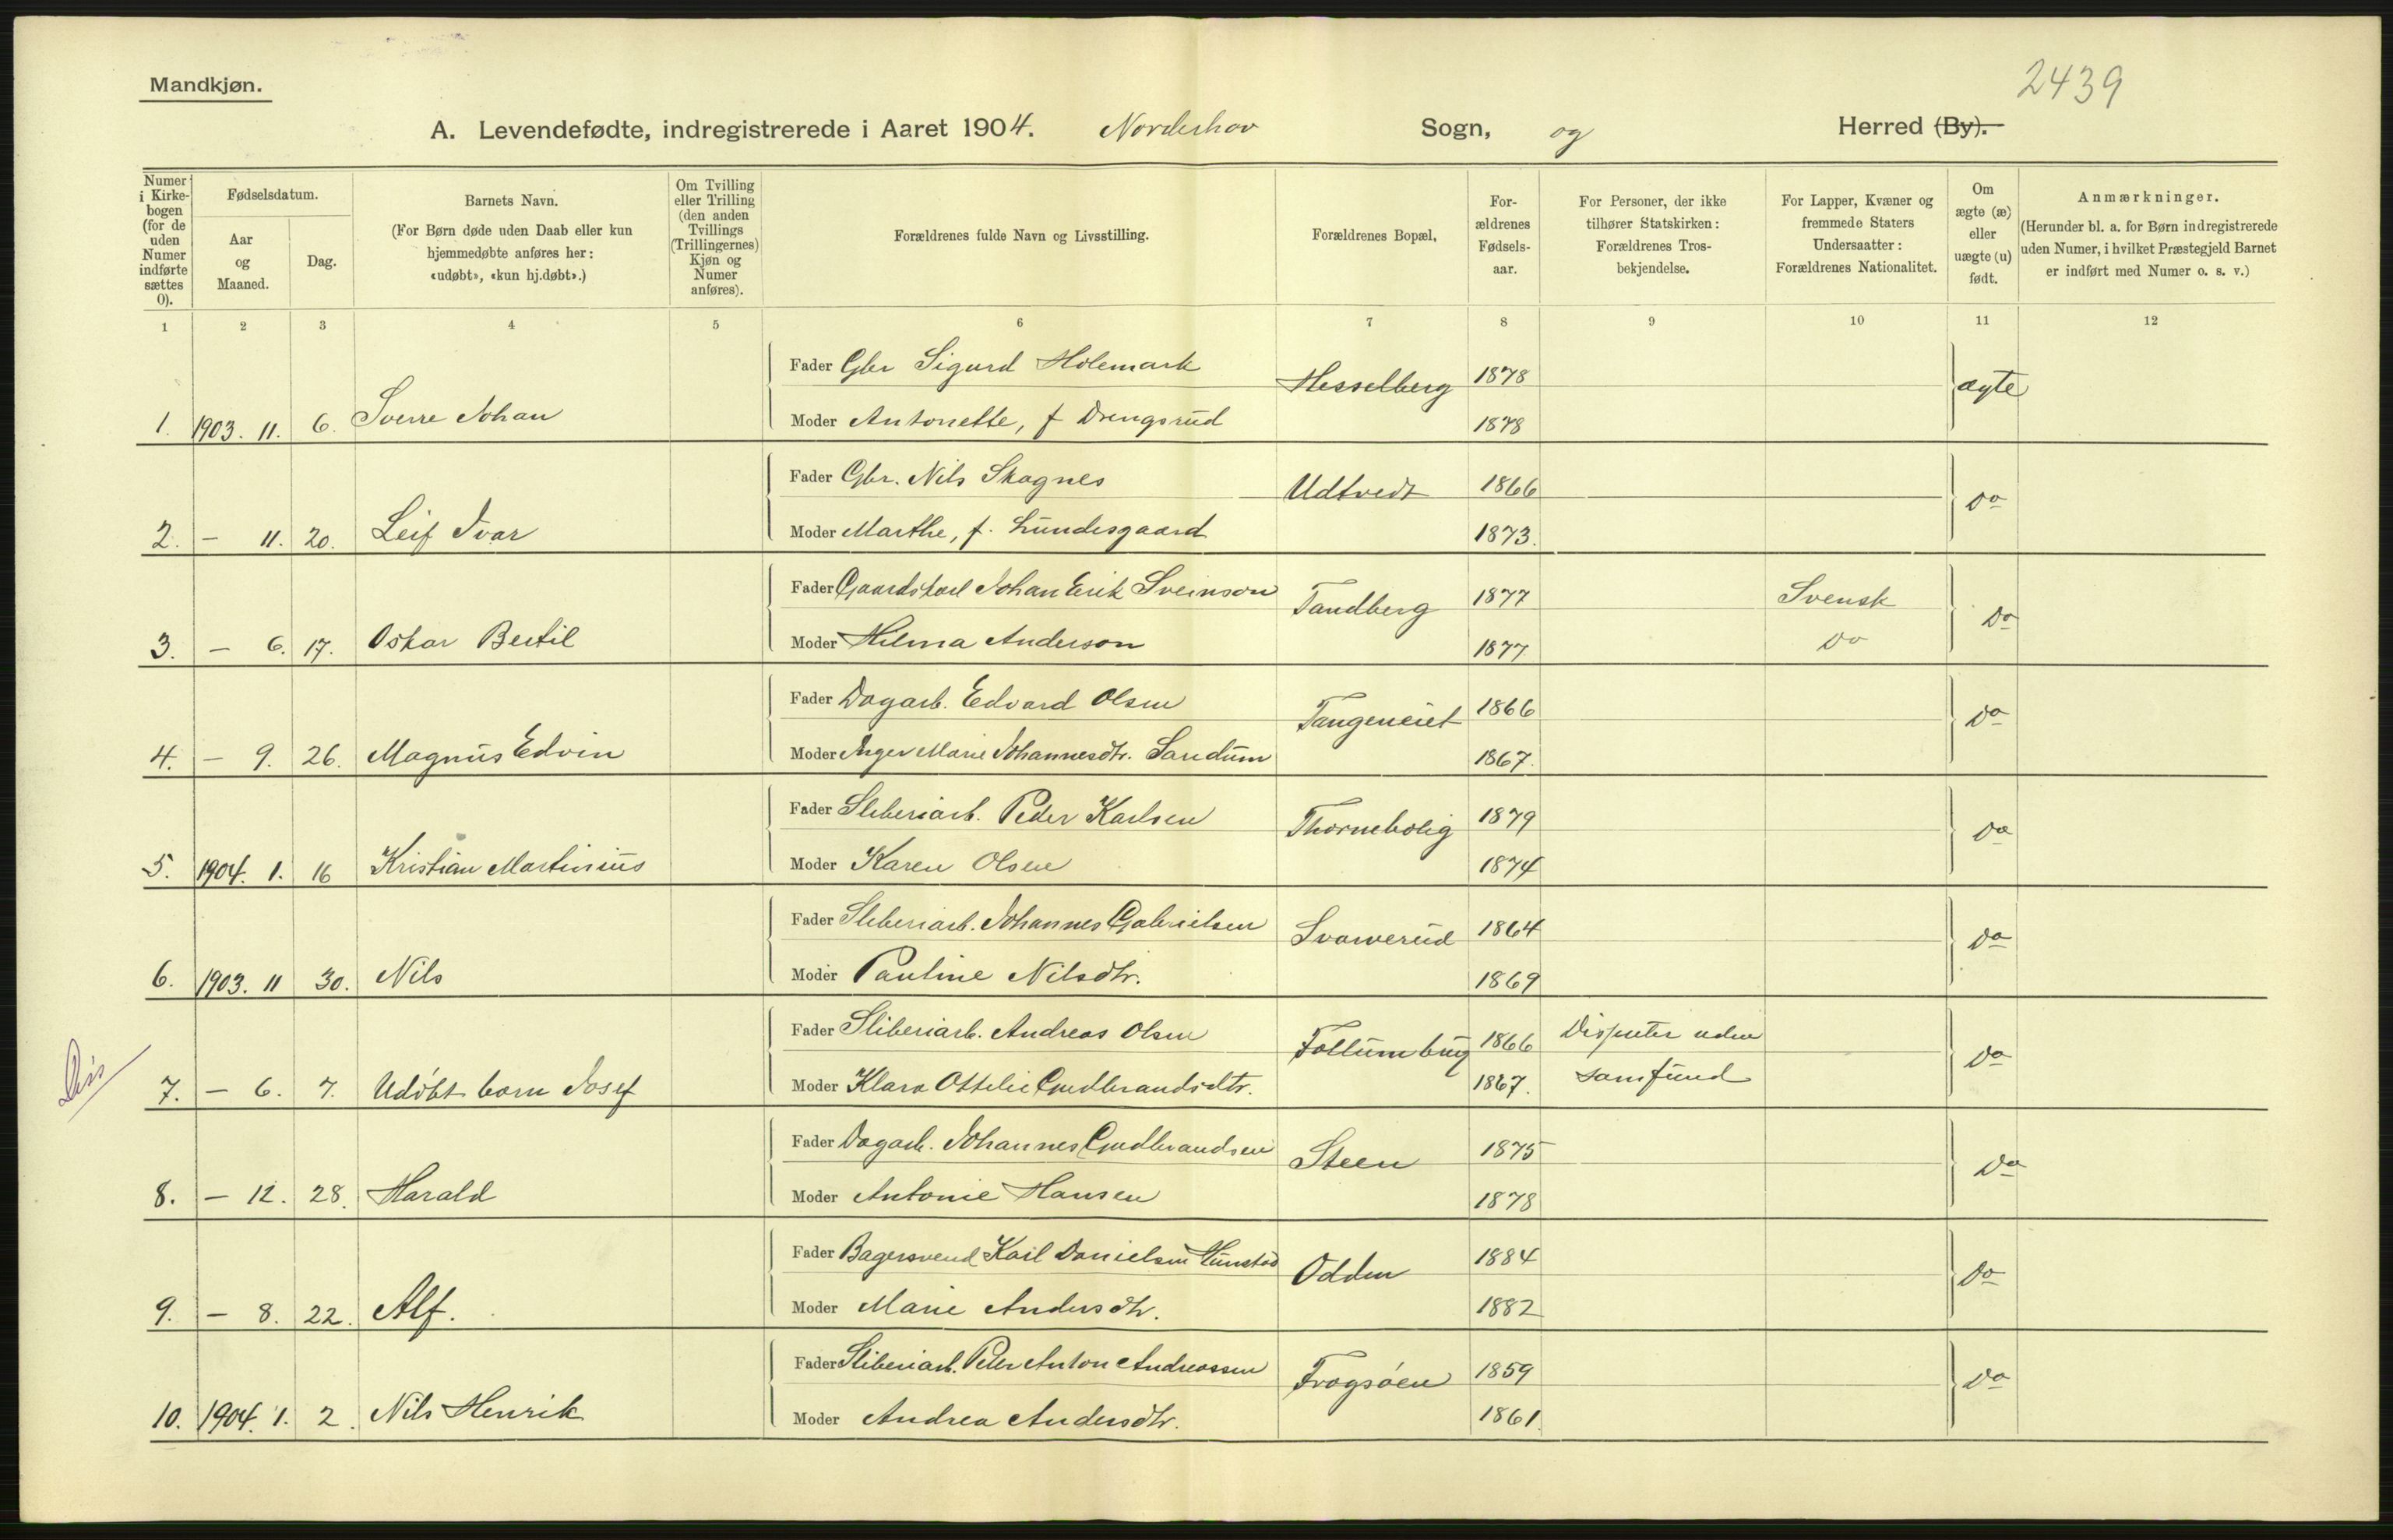 2439
Mandkjøn.
A. Levendefødte, indregistrerede i Aaret 1904. Norderhov Sogn, og Herred (By).
Numer i Kirkebogen (for de uden Numer indførte sættes 0).
Fødselsdatum.
Aar og Maaned.
Dag.
Barnets Navn.
(For Børn døde uden Daab eller kun hjemmedøbte anføres her: «udøbt», «kun hj.døbt».)
Om Tvilling eller Trilling (den anden Tvillings (Trillingernes) Kjøn og Numer anføres).
Forældrenes fulde Navn og Livsstilling.
Forældrenes Bopæl.
Forældrenes Fødselsaar.
For Personer, der ikke tilhører Statskirken: Forældrenes Trosbekjendelse.
For Lapper, Kvæner og fremmede Staters Undersaatter: Forældrenes Nationalitet.
Om ægte (æ) eller uægte (u) født.
Anmærkninger.
(Herunder bl. a. for Børn indregistrerede uden Numer, i hvilket Præstegjeld Barnet er indført med Numer o. s. v.)
1 2 3 4 5 6 7 8 9 10 11 12
Fader Gbr Sigurd Holemark Hesselberg 1878 ægte
1. 1903. 11. 6. Sverre Johan Moder Antonette, f Drengsrud 1878
Fader Gbr. Nils Skagnes Udtvedt 1866 do
2. – 11. 20. Leif Ivar Moder Marthe, f. Lundesgaard 1873.
Fader Gaardskarl Johan Erik Sveinson Tandberg 1877 Svensk do
3. – 6. 17. Oskar Bertil Moder Hilma Anderson 1877 do
Fader Dagarb. Edvard Olsen Tangeneiet 1866 do
4. – 9. 26. Magnus Edvin Moder Inger Marie Johannesdtr. Sandum 1867.
Fader Sliberiarb. Peder Karlsen Thornebolig 1879 do
5. 1904. 1. 16 Kristian Martinius Moder Karen Olsen 1874
Fader Sliberiarb. Johannes Gabrielsen Svarverud 1864 do
6. 1903. 11 30. Nils Moder Pauline Nilsdtr. 1869
Fader Sliberiarb. Andreas Olsen Follum brug 1866 Dissenter uden do
Dis 7. – 6. 7. Udøbt barn Josef Moder Klara Ottelie Gudbrandsdtr. 1867. samfund
Fader Dagarb. Johannes Gudbrandsen Steen 1875 do
8. – 12. 28. Harald Moder Antonie Hansen 1878
Fader Bagersvend Karl Danielsen Odden 1884 do
9. – 8. 22. Alf. Moder Marie Andersdtr. 1882
Fader Sliberiarb. Peter Anton Andreassen Frogsøen 1859 do
10. 1904. 1. 2. Nils Henrik Moder Andrea Andersdtr. 1861.